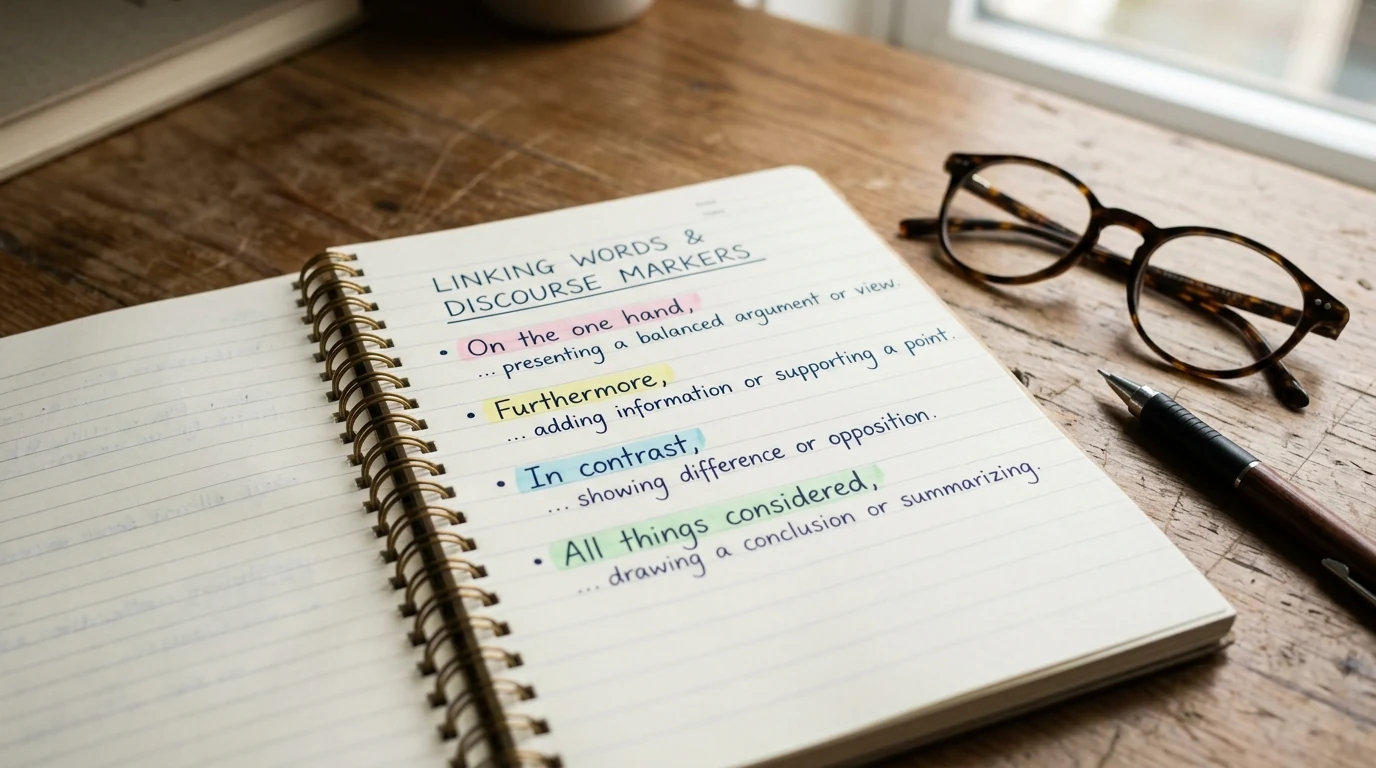 LINKING WORDS &
DISCOURSE MARKERS
• On the one hand,
... presenting a balanced argument or view.
• Furthermore,
... adding information or supporting a point.
• In contrast,
... showing difference or opposition.
• All things considered,
... drawing a conclusion or summarizing.